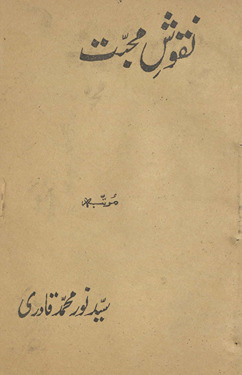 نقوشِ محبّت
مرتبہ
سیّد نور محمّد قادری